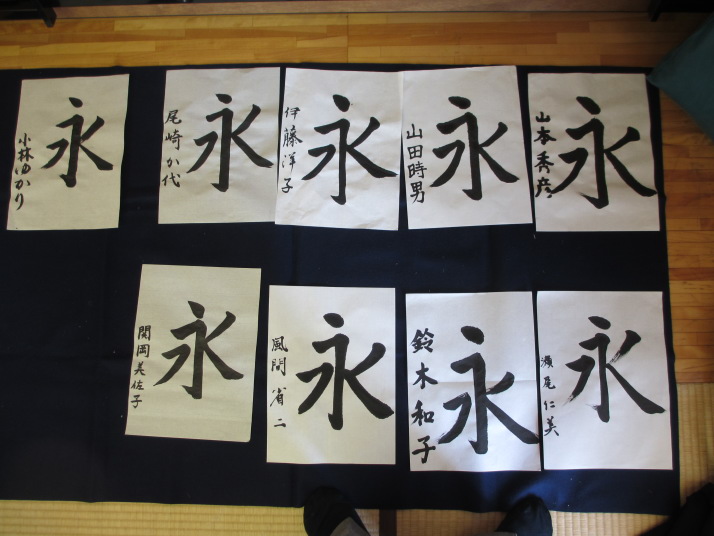 永
小林ゆかり
永
尾崎か代
永
伊藤洋子
永
山田時男
永
山本秀彦
永
関岡美佐子
永
風間省二
永
鈴木和子
永
瀬尾仁美